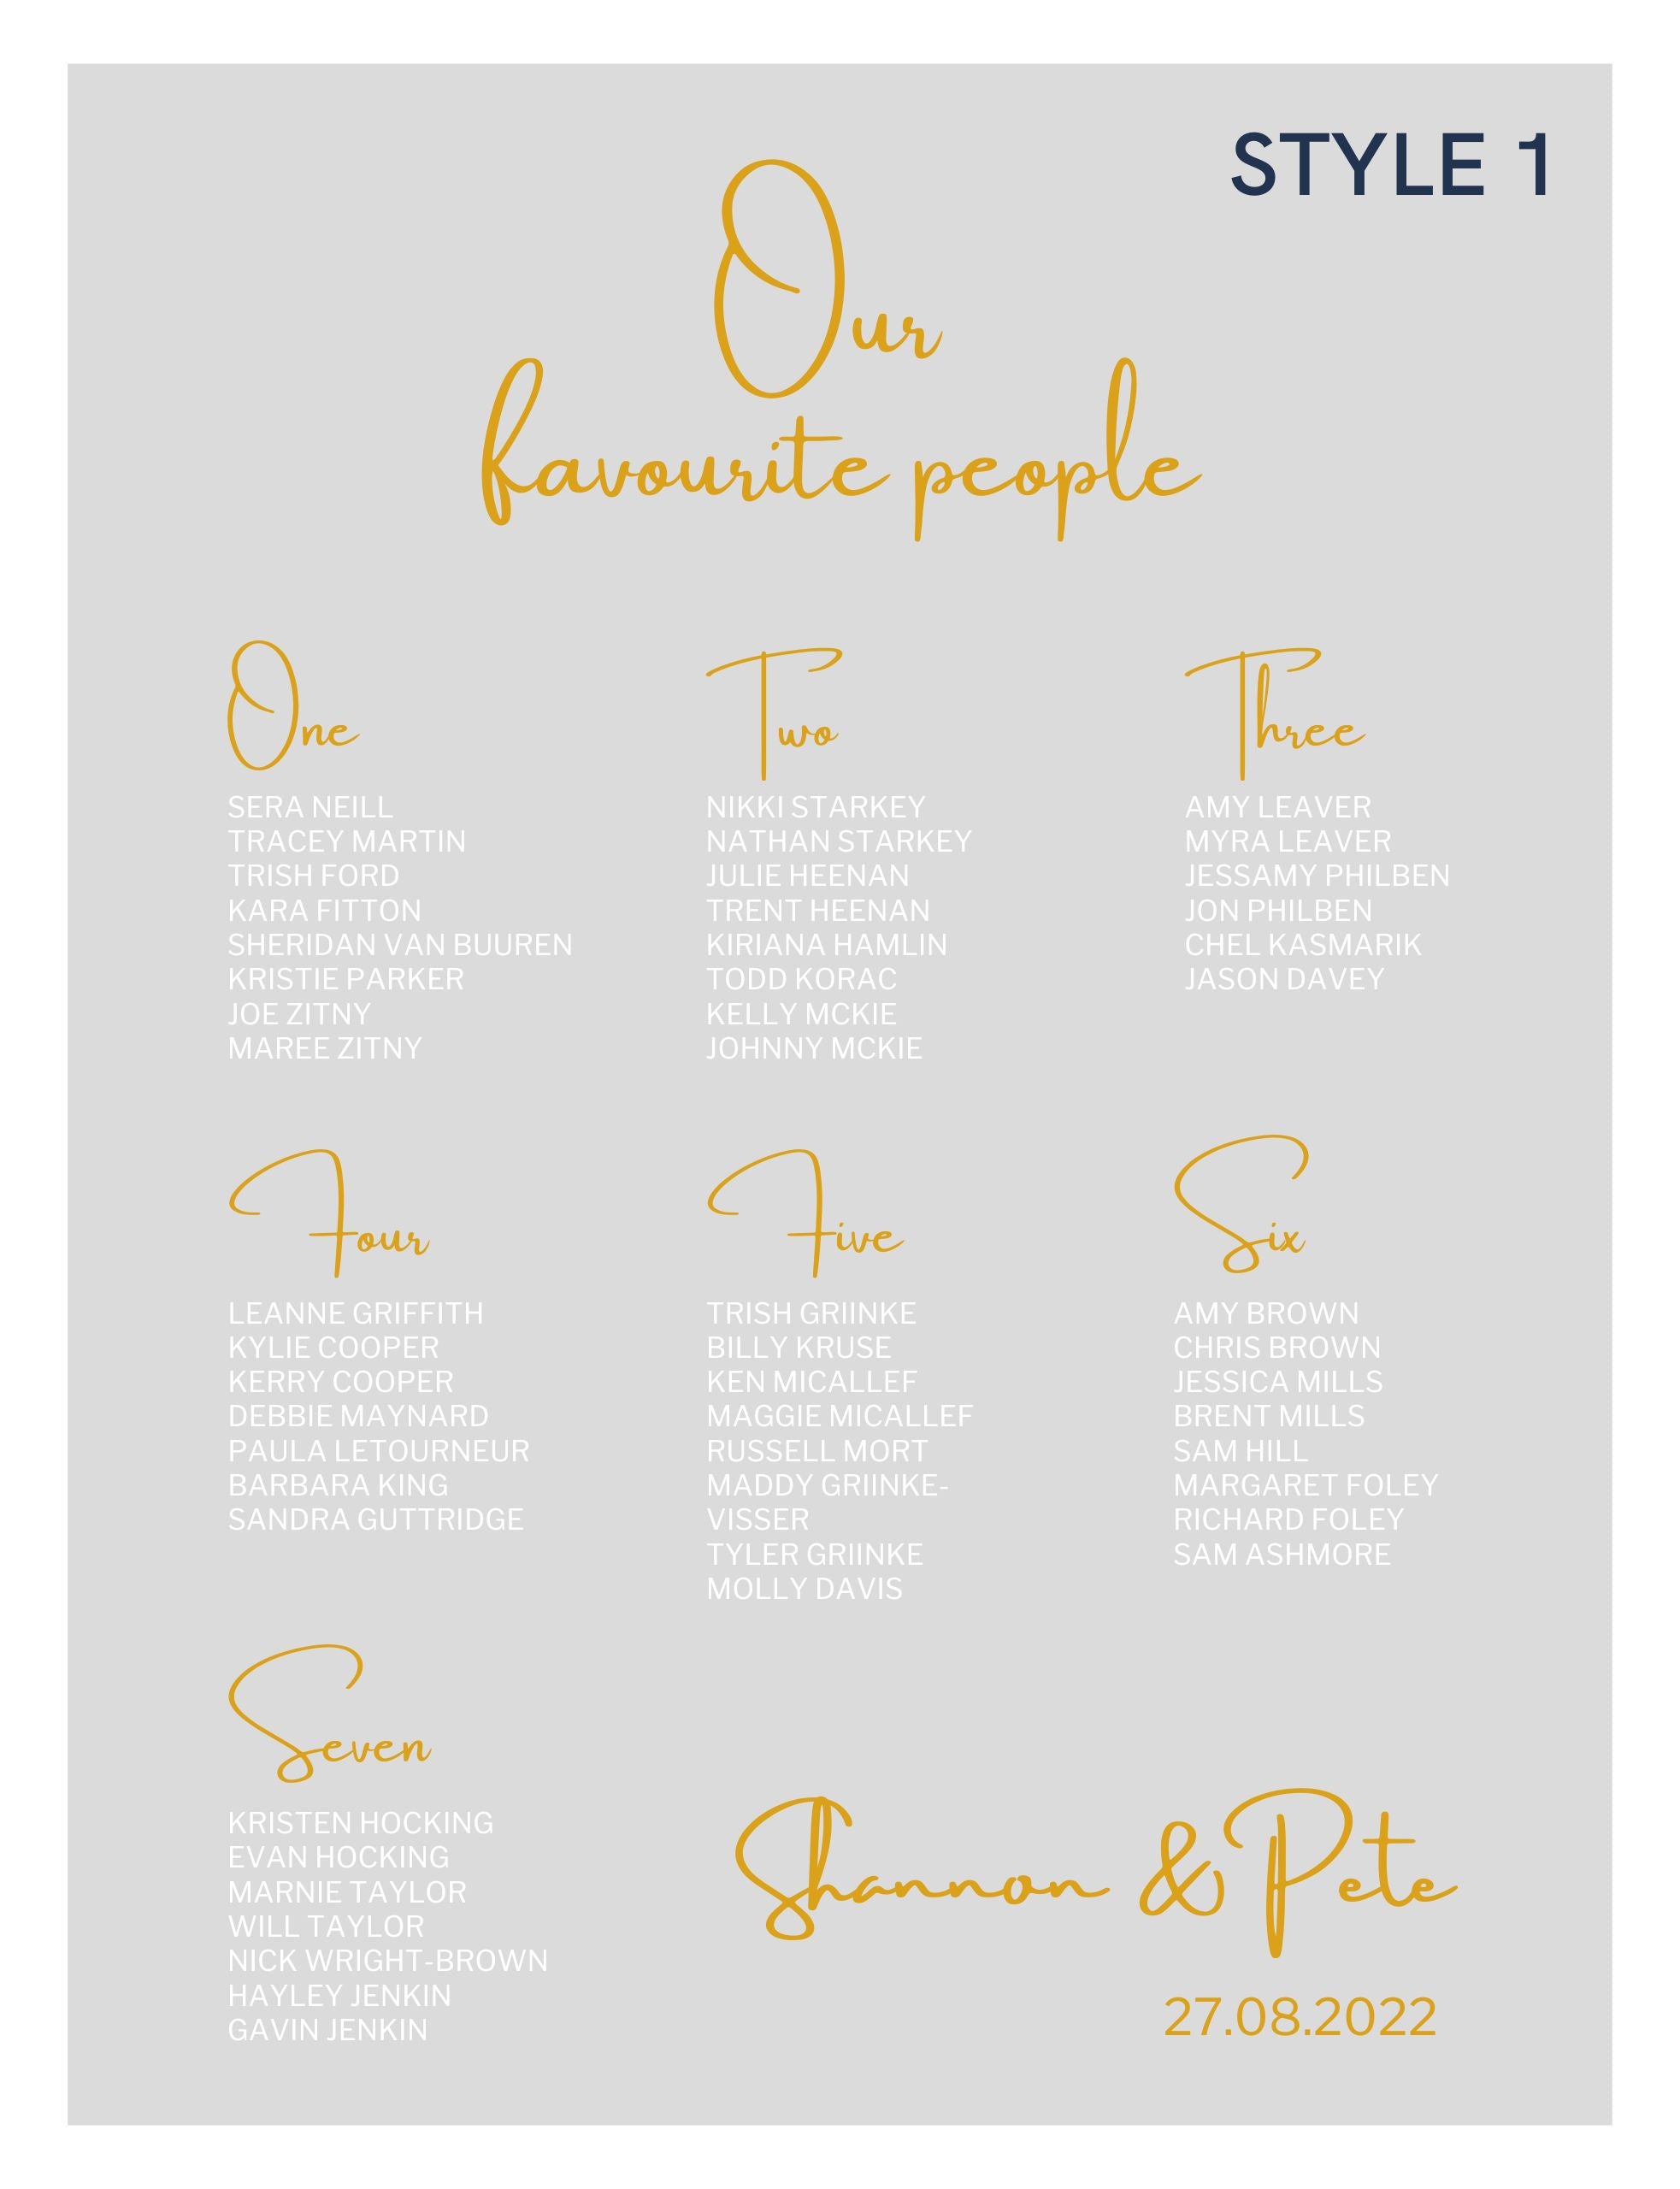 STYLE 1
Our
favourite people
One
SERA NEILL
TRACEY MARTIN
TRISH FORD
KARA FITTON
SHERIDAN VAN BUUREN
KRISTIE PARKER
JOE ZITNY
MAREE ZITNY
Two
NIKKI STARKEY
NATHAN STARKEY
JULIE HEENAN
TRENT HEENAN
KIRIANA HAMLIN
TODD KORAC
KELLY MCKIE
JOHNNY MCKIE
Three
AMY LEAVER
MYRA LEAVER
JESSAMY PHILBEN
JON PHILBEN
CHEL KASMARIK
JASON DAVEY
Four
LEANNE GRIFFITH
KYLIE COOPER
KERRY COOPER
DEBBIE MAYNARD
PAULA LETOURNEUR
BARBARA KING
SANDRA GUTTRIDGE
Five
TRISH GRIINKE
BILLY KRUSE
KEN MICALLEF
MAGGIE MICALLEF
RUSSELL MORT
MADDY GRIINKE-
VISSER
TYLER GRIINKE
MOLLY DAVIS
Six
AMY BROWN
CHRIS BROWN
JESSICA MILLS
BRENT MILLS
SAM HILL
MARGARET FOLEY
RICHARD FOLEY
SAM ASHMORE
Seven
KRISTEN HOCKING
EVAN HOCKING
MARNIE TAYLOR
WILL TAYLOR
NICK WRIGHT-BROWN
HAYLEY JENKIN
GAVIN JENKIN
Shannon & Pete
27.08.2022